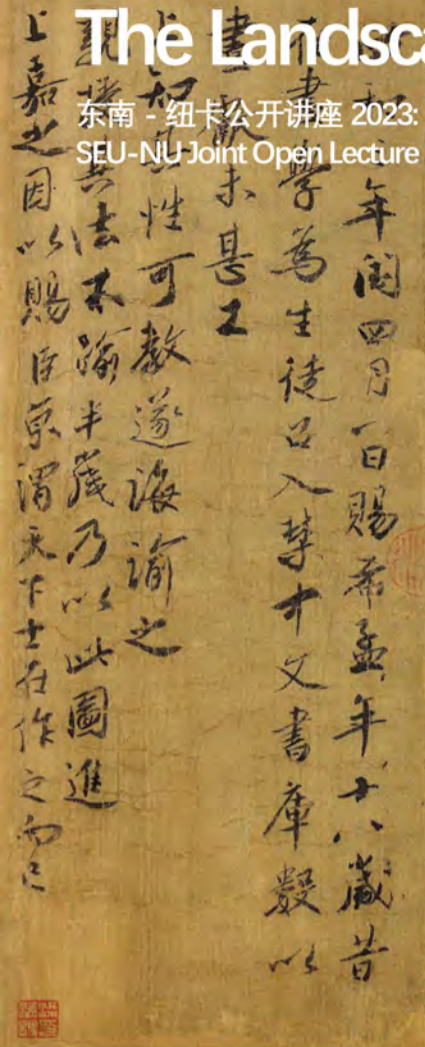 The Landsca
东南 - 纽卡公开讲座 2023:
SEU-NU Joint Open Lecture
年閏四月一日賜希孟年十八歲昔
在畫學為生徒召入禁中文書庫數以
畫獻未甚工
上知其性可教遂誨諭之
親授其法不踰半歲乃以此圖進
上嘉之因以賜臣京謂天下士在作之而已